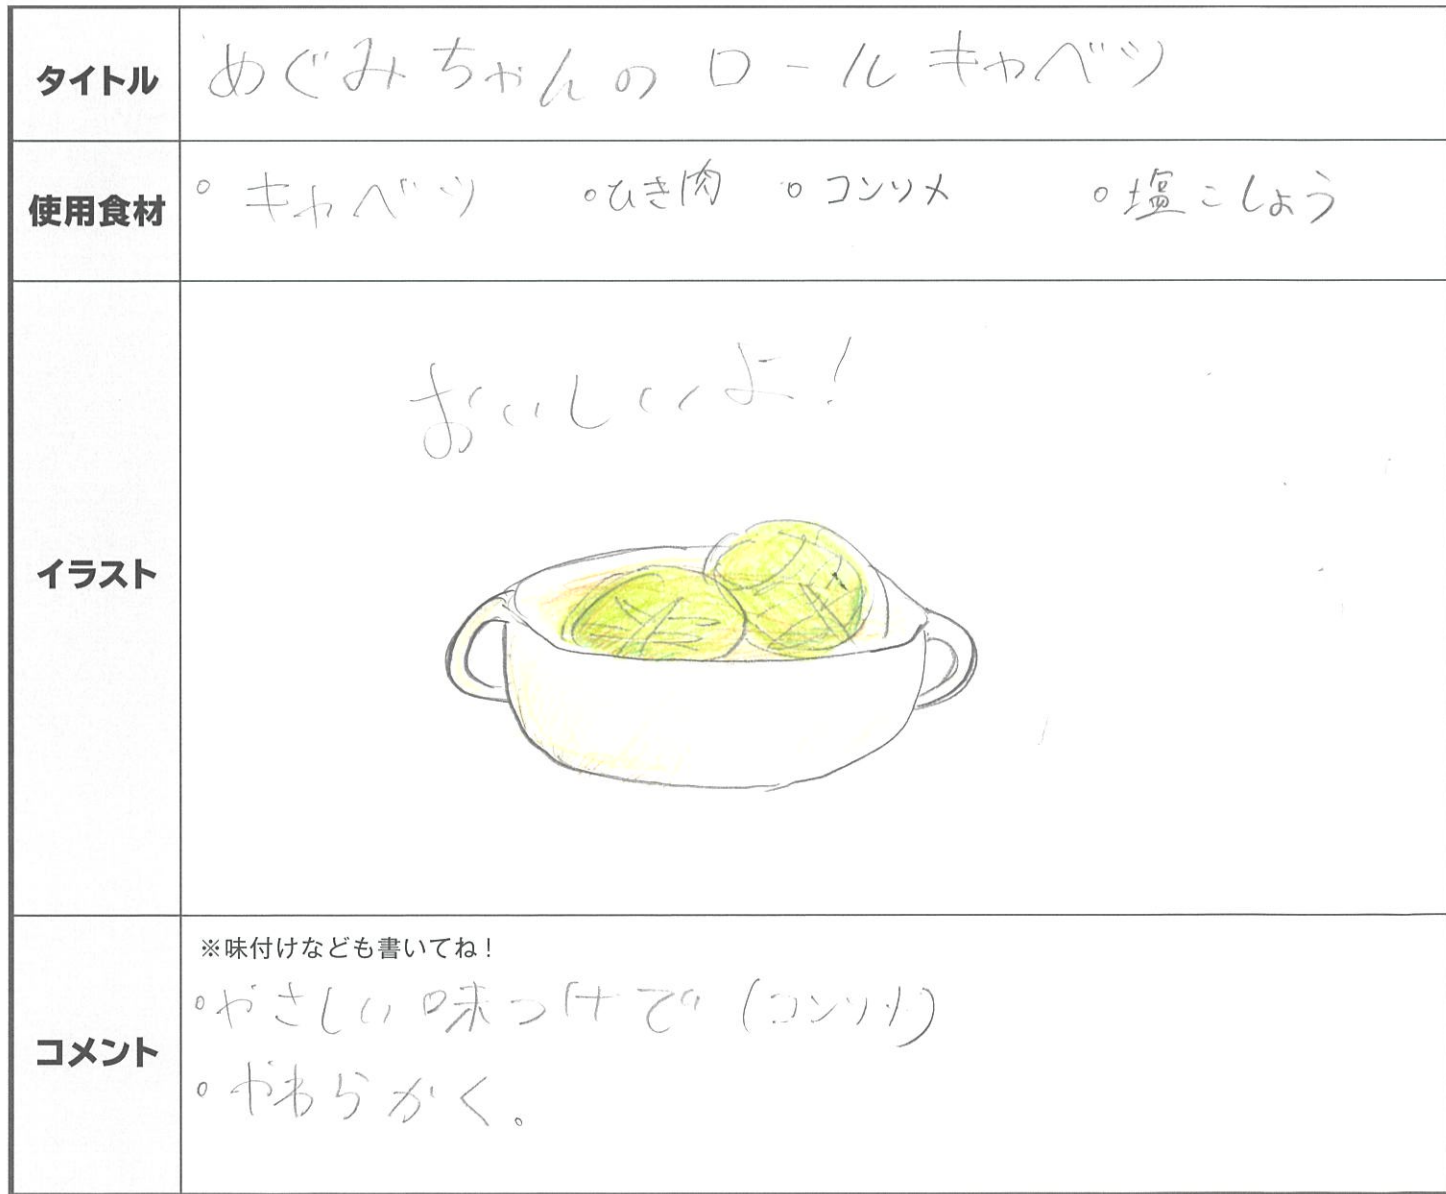 タイトル
めぐみちゃんのロールキャベツ
使用食材
○キャベツ ○ひき肉 ○コンソメ ○塩こしょう
イラスト
おいしいよ!
コメント
※味付けなども書いてね!
○やさしい味つけで(コンソメ)
○やわらかく。